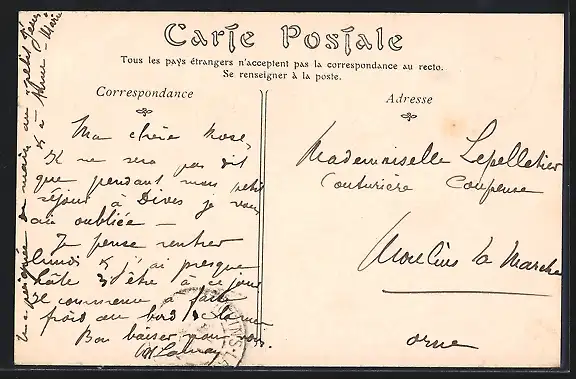 Carte Postale
Tous les pays étrangers n'acceptent pas la correspondance au recto.
Se renseigner à la poste.
Correspondance
Adresse
Ma chère Rose,
Il ne sera pas dit
que pendant mon petit
séjour à Dives je vous
ai oubliée —
Je pense rentrer
lundi & j'ai presque
hâte d'être à ce jour
Il commence à faire
froid au bord de la mer
Bon baiser pour vous.
Une poignée de mains au petit
& à
Mademoiselle Lepelletier
Couturière Coupeuse
Moulins la Marche
Orne
MOULINS-LA